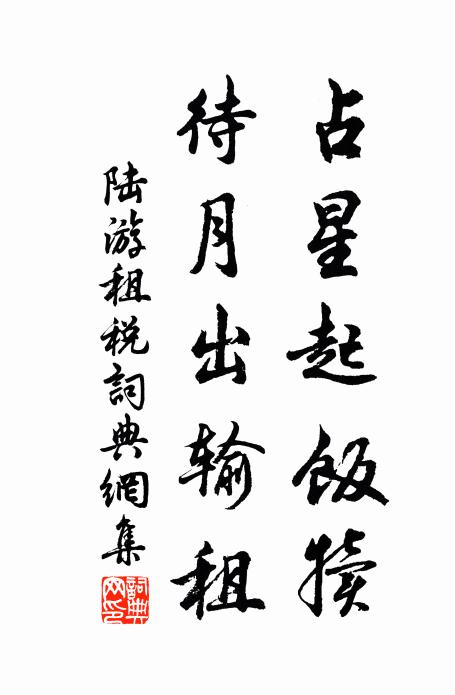 占星起飯犢
待月出输租
陆游租税詞典網集
詞典网印